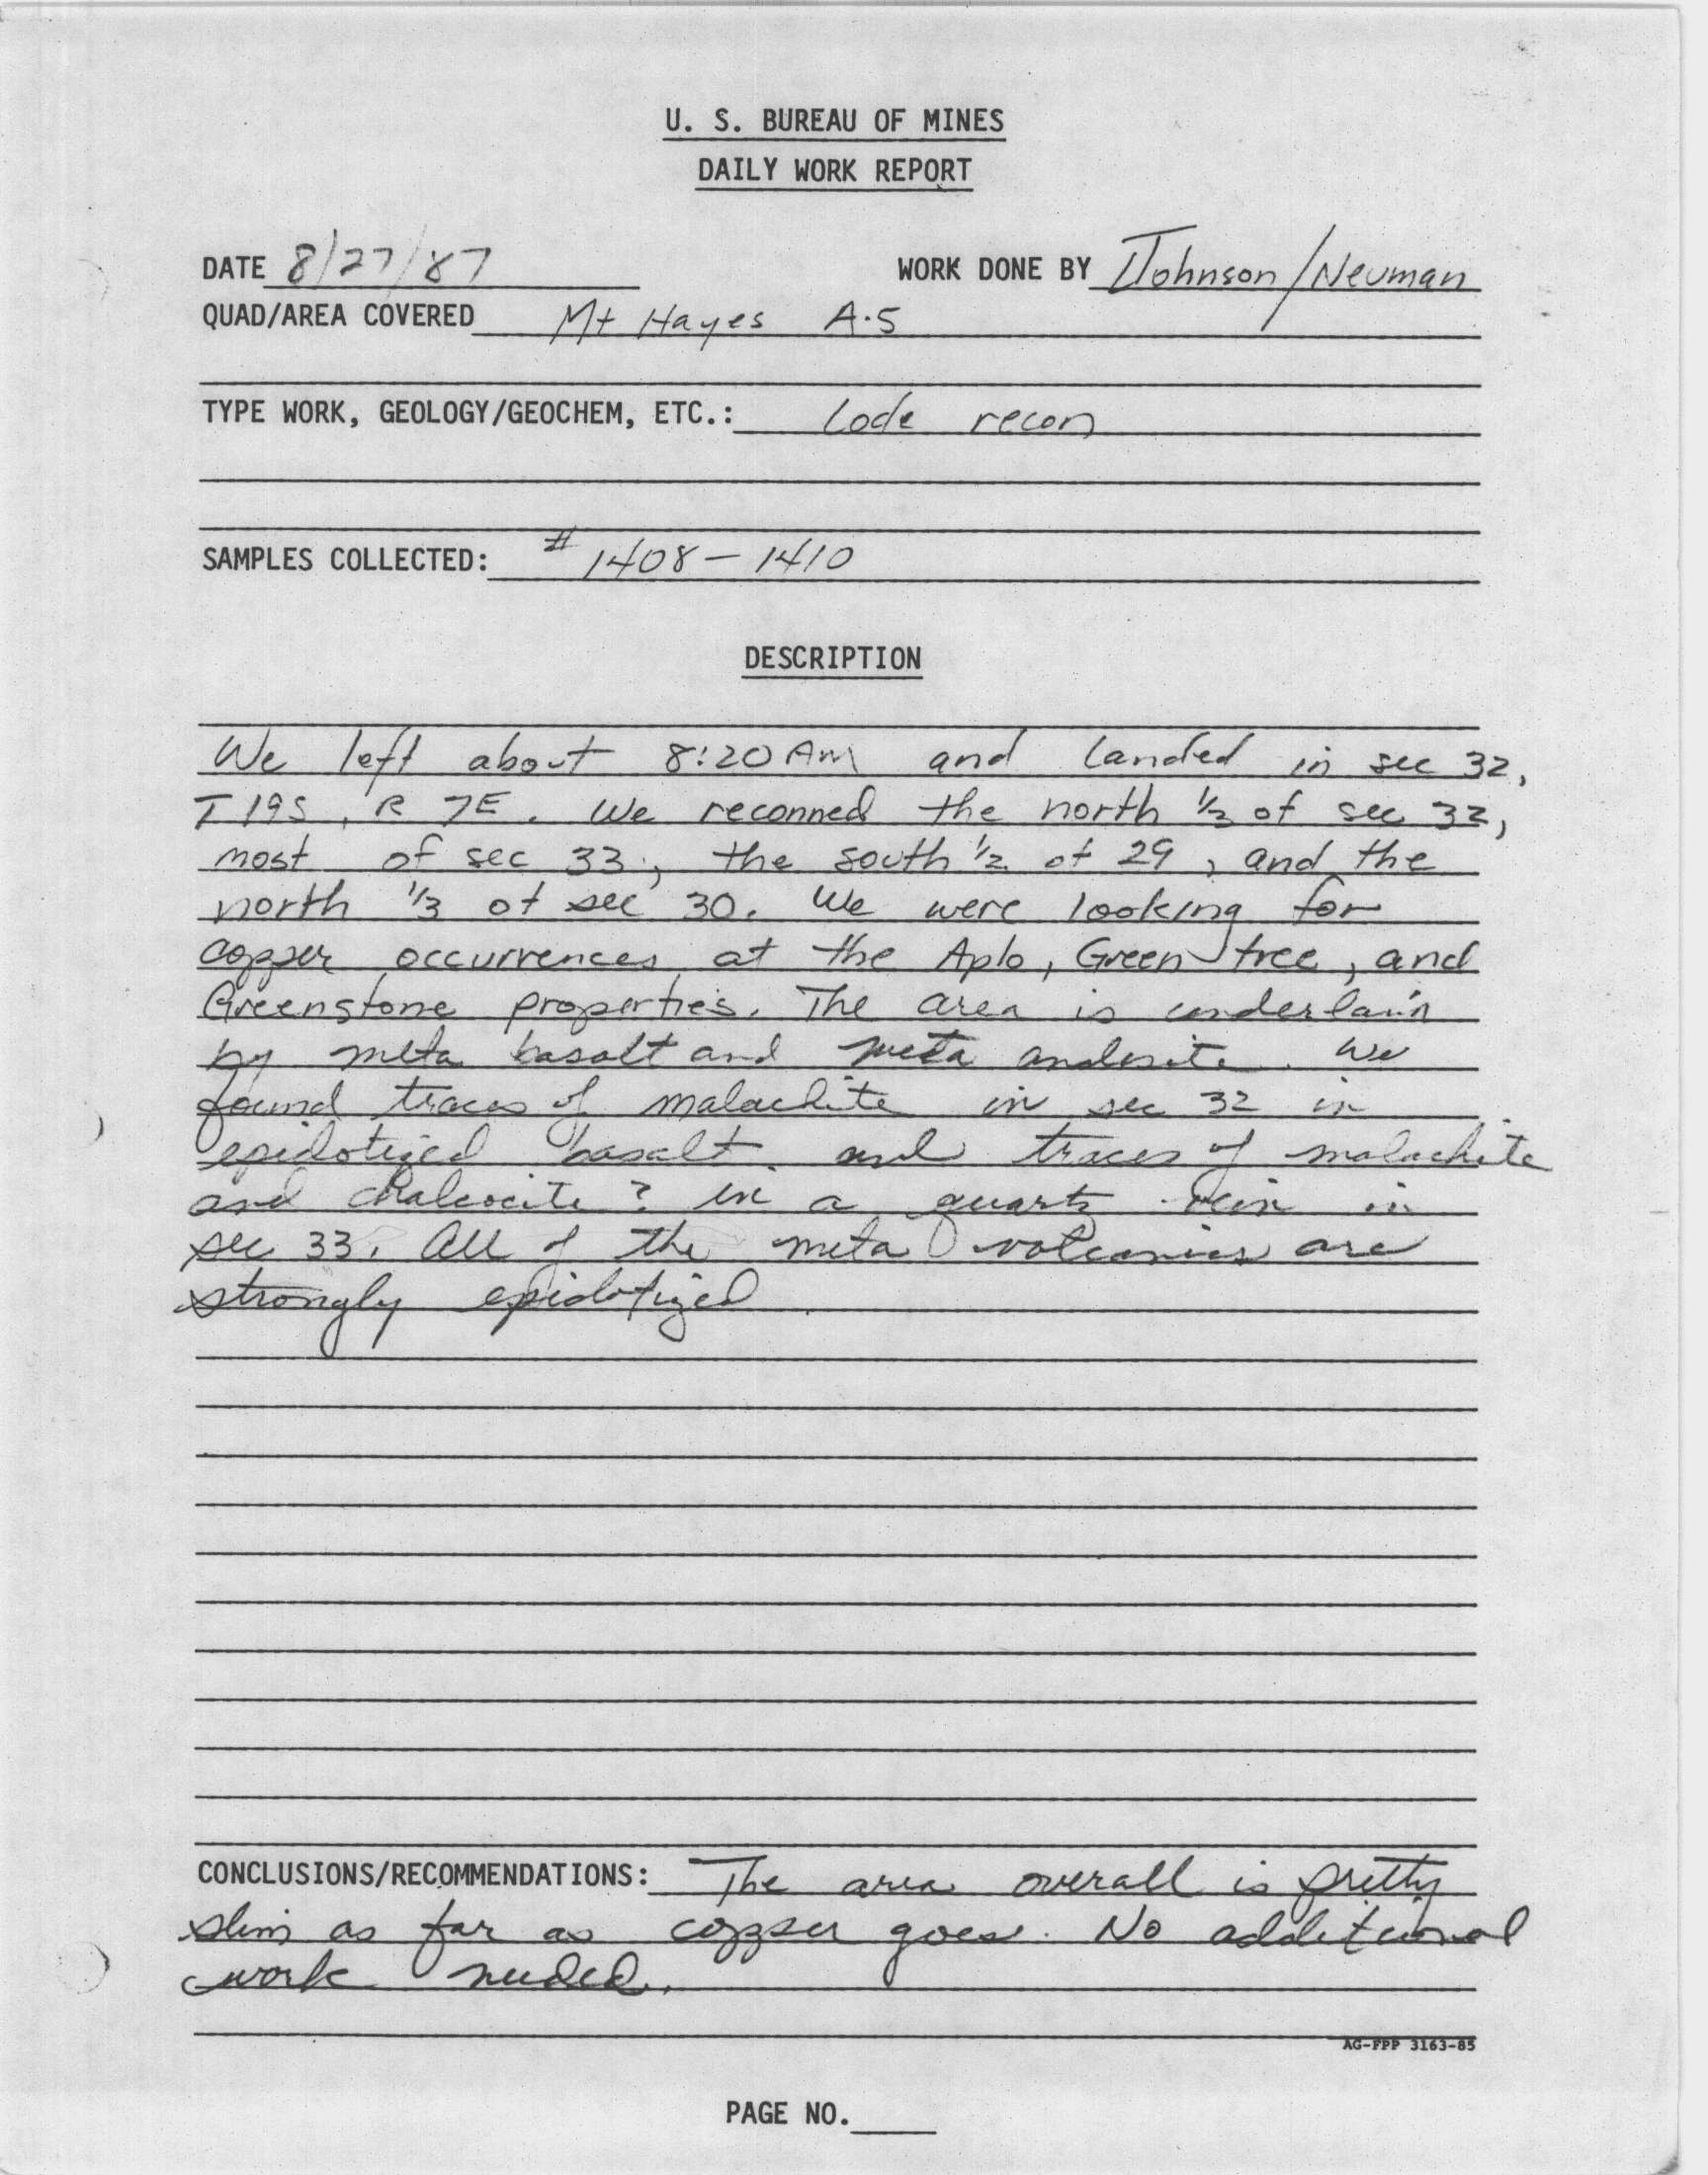 U. S. BUREAU OF MINES
DAILY WORK REPORT
DATE 8/27/87 WORK DONE BY Johnson/Neuman
QUAD/AREA COVERED Mt Hayes A-5
TYPE WORK, GEOLOGY/GEOCHEM, ETC.: Lode recon
SAMPLES COLLECTED: # 1408-1410
DESCRIPTION
We left about 8:20 AM and landed in sec 32,
T 19S, R 7E. We reconned the north 1/2 of sec 32,
most of sec 33, the south 1/2 of 29, and the
north 1/3 of sec 30. We were looking for
copper occurrences at the Aplo, Green tree, and
Greenstone properties. The area is underlain
by meta basalt and meta andesite. We
found traces of malachite in sec 32 in
epidotized basalt. and traces of malachite
and chalcocite ? in a quartz vein in
sec 33. All of the meta volcanics are
strongly epidotized.
CONCLUSIONS/RECOMMENDATIONS: The area overall is pretty
slim as far as copper goes. No additional
work needed.
AG-FPP 3163-85
PAGE NO.